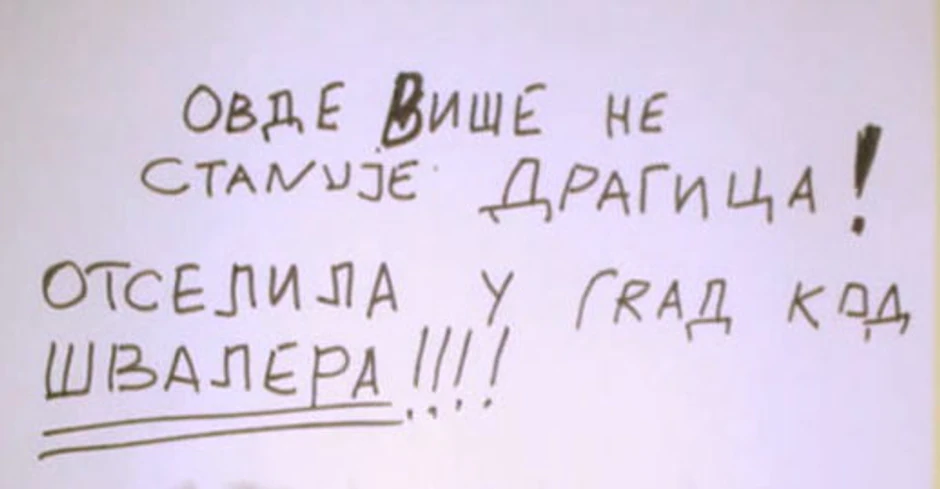 ОВДЕ ВИШЕ НЕ
СТАNУЈЕ ДРАГИЦА!
ОТСЕЛИЛА У ГRАД КОД
ШВАЛЕРА!!!!